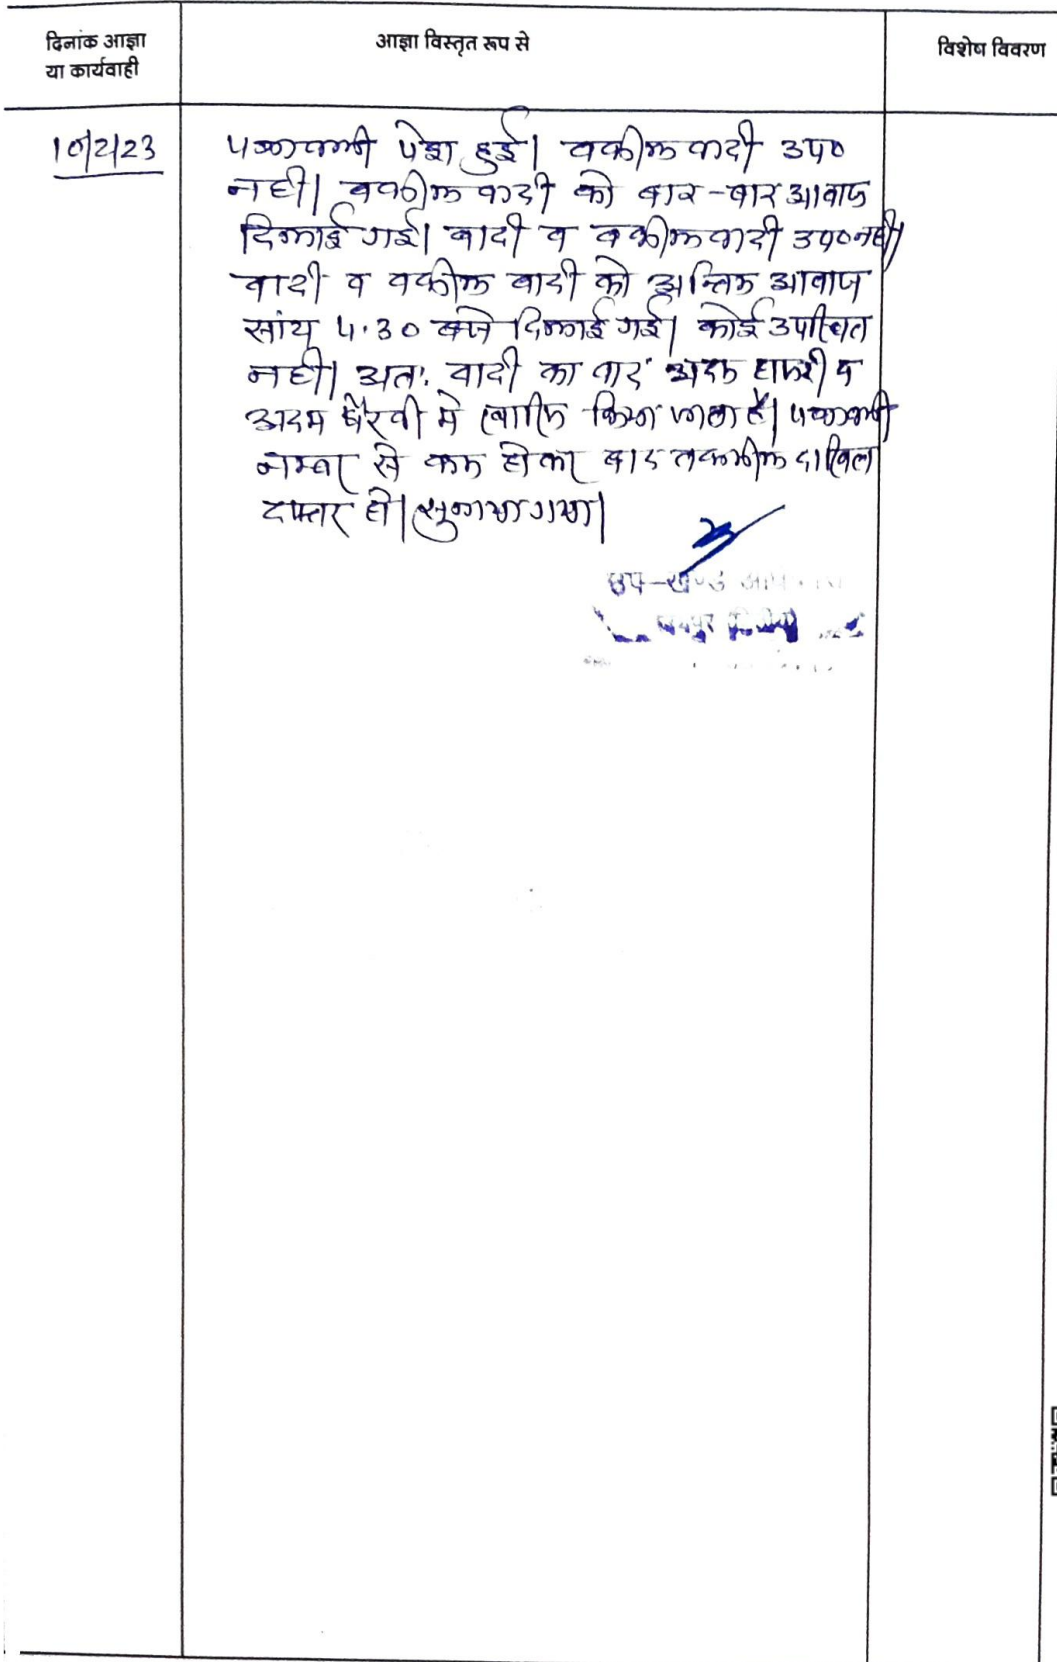 दिनांक आज्ञा
या कार्यवाही
आज्ञा विस्तृत रूप से
विशेष विवरण
10/2/23
पत्रावली पेश हुई। वकील वादी उप०
नही। वकील वादी को बार-बार आवाज
दिलाई गई। वादी व वकील वादी उप० नही।
वादी व वकील वादी को अन्तिम आवाज
सांय 4.30 बजे दिलाई गई। कोई उपस्थित
नही। अतः वादी का वाद अदम हाजरी व
अदम पैरवी मे खारिज किया जाता है। पत्रावली
नम्बर से कम होकर बाद तकमील दाखिल
दफ्तर हो। सुनाया गया।
उप-खण्ड